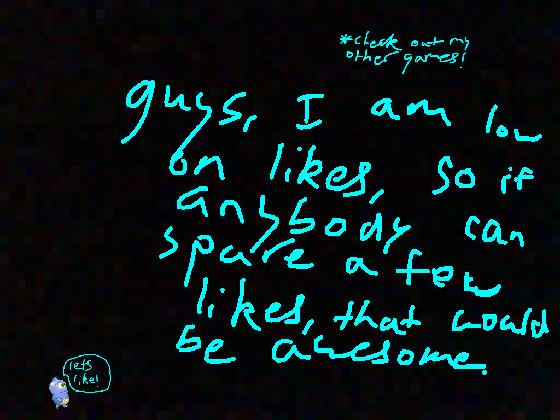 *check out my
other games!
guys, I am low
on likes, so if
anybody can
spare a few
likes, that would
be awesome.
lets
like!